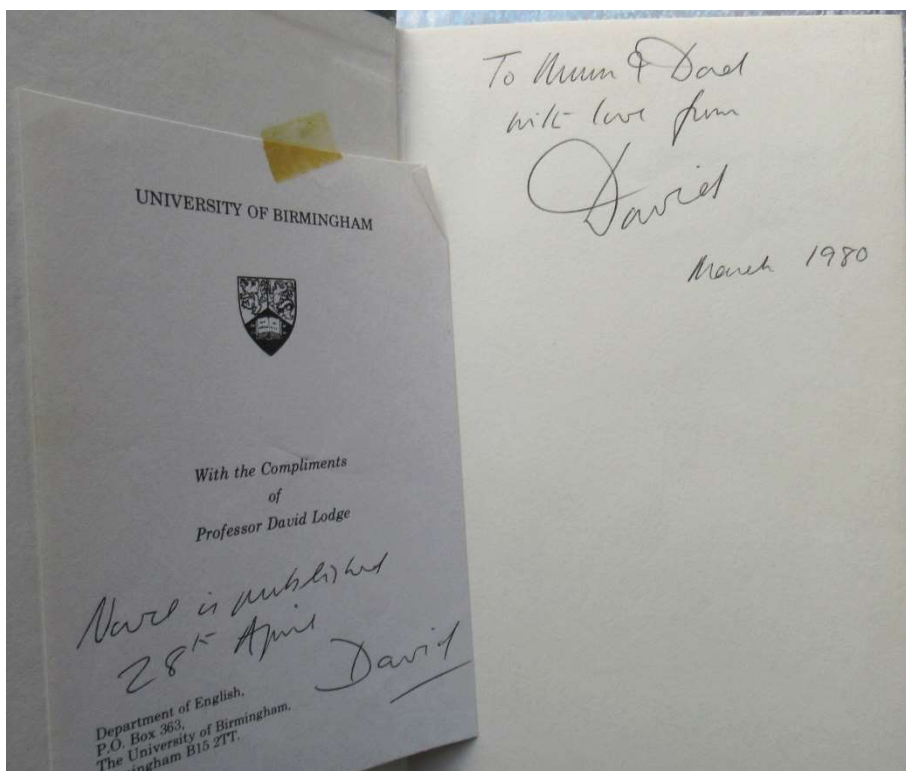 UNIVERSITY OF BIRMINGHAM
With the Compliments
of
Professor David Lodge
Novel is published
28th April
David
Department of English,
P.O. Box 363,
The University of Birmingham,
mingham B15 2TT.
To Mum & Dad
with love from
David
March 1980